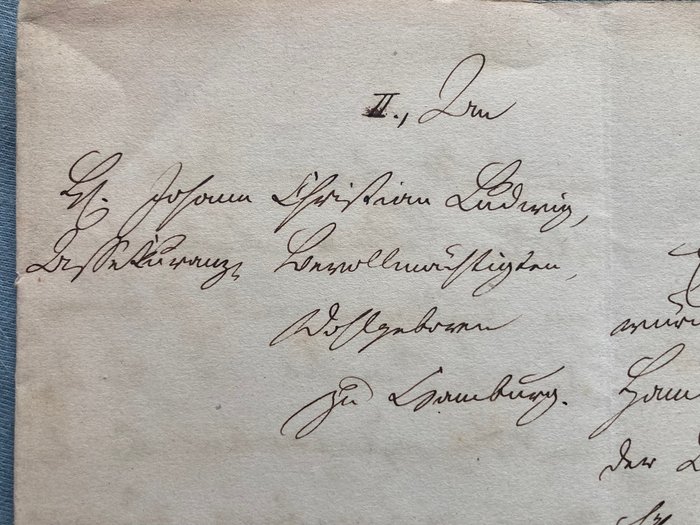 II., An
H. Johann Christian Ludwig,
Assekuranz, Bevollmächtigten,
Wohlgeboren
zu Hamburg.
der